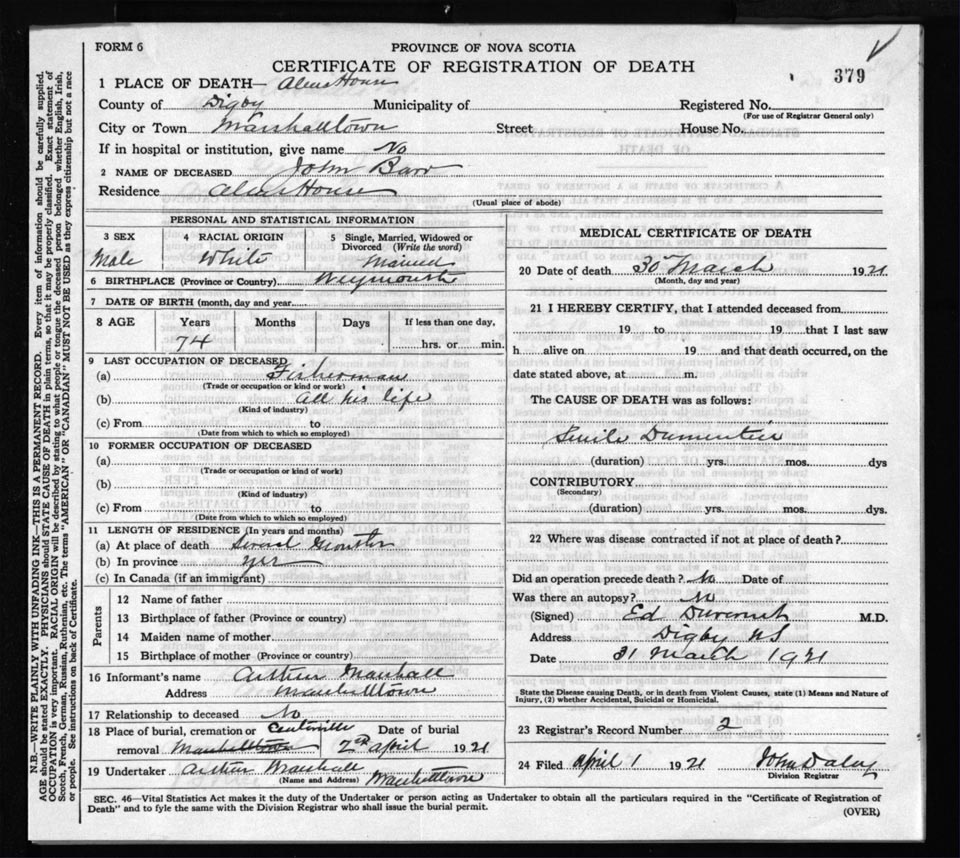 FORM 6
PROVINCE OF NOVA SCOTIA
CERTIFICATE OF REGISTRATION OF DEATH
379
1 PLACE OF DEATH— Alms House
County of Digby Municipality of Registered No.
(For use of Registrar General only)
City or Town Marshalltown Street House No.
If in hospital or institution, give name No
2 NAME OF DECEASED John Barr
Residence Alms House
(Usual place of abode)
PERSONAL AND STATISTICAL INFORMATION
3 SEX 4 RACIAL ORIGIN 5 Single, Married, Widowed or Divorced (Write the word)
Male White Married
6 BIRTHPLACE (Province or Country) Weymouth
7 DATE OF BIRTH (month, day and year)
8 AGE Years Months Days If less than one day,
74 hrs. or min.
9 LAST OCCUPATION OF DECEASED
(a) Fisherman
(Trade or occupation or kind of work)
(b) all his life
(Kind of industry)
(c) From to
(Date from which to which so employed)
10 FORMER OCCUPATION OF DECEASED
(a)
(Trade or occupation or kind of work)
(b)
(Kind of industry)
(c) From to
(Date from which to which so employed)
11 LENGTH OF RESIDENCE (In years and months)
(a) At place of death
(b) In province yes
(c) In Canada (if an immigrant)
Parents
12 Name of father
13 Birthplace of father (Province or country)
14 Maiden name of mother
15 Birthplace of mother (Province or country)
16 Informant's name Arthur Marshall
Address Marshalltown
17 Relationship to deceased No
18 Place of burial, cremation or Centreville Date of burial
removal Marshalltown 2nd April 1921
19 Undertaker Arthur Marshall Marshalltown
(Name and Address)
MEDICAL CERTIFICATE OF DEATH
20 Date of death 30 March 1921
(Month, day and year)
21 I HEREBY CERTIFY, that I attended deceased from
19 to 19 that I last saw
h alive on 19 and that death occurred, on the
date stated above, at m.
The CAUSE OF DEATH was as follows:
Senile Dementia
(duration) yrs. mos. dys
CONTRIBUTORY
(Secondary)
(duration) yrs. mos. dys.
22 Where was disease contracted if not at place of death?
Did an operation precede death? No Date of
Was there an autopsy? No
(Signed) Ed M.D.
Address Digby NS
Date 31 March 1921
State the Disease causing Death, or in death from Violent Causes, state (1) Means and Nature of
Injury, (2) whether Accidental, Suicidal or Homicidal.
23 Registrar's Record Number 2
24 Filed April 1 1921 John Daley
Division Registrar
SEC. 46—Vital Statistics Act makes it the duty of the Undertaker or person acting as Undertaker to obtain all the particulars required in the "Certificate of Registration of
Death" and to fyle the same with the Division Registrar who shall issue the burial permit.
(OVER)
N.B.—WRITE PLAINLY WITH UNFADING INK—THIS IS A PERMANENT RECORD. Every item of information should be carefully supplied.
AGE should be stated EXACTLY. PHYSICIANS should STATE CAUSE OF DEATH in plain terms, so that it may be properly classified. Exact statement of
OCCUPATION is very important. RACIAL ORIGIN will be described by stating to what people or tongue the deceased person belonged whether English, Irish,
Scotch, French, German, Russian, Ruthenian, etc. The terms "AMERICAN" OR "CANADIAN" MUST NOT BE USED as they express citizenship but not a race
or people. See instructions on back of Certificate.